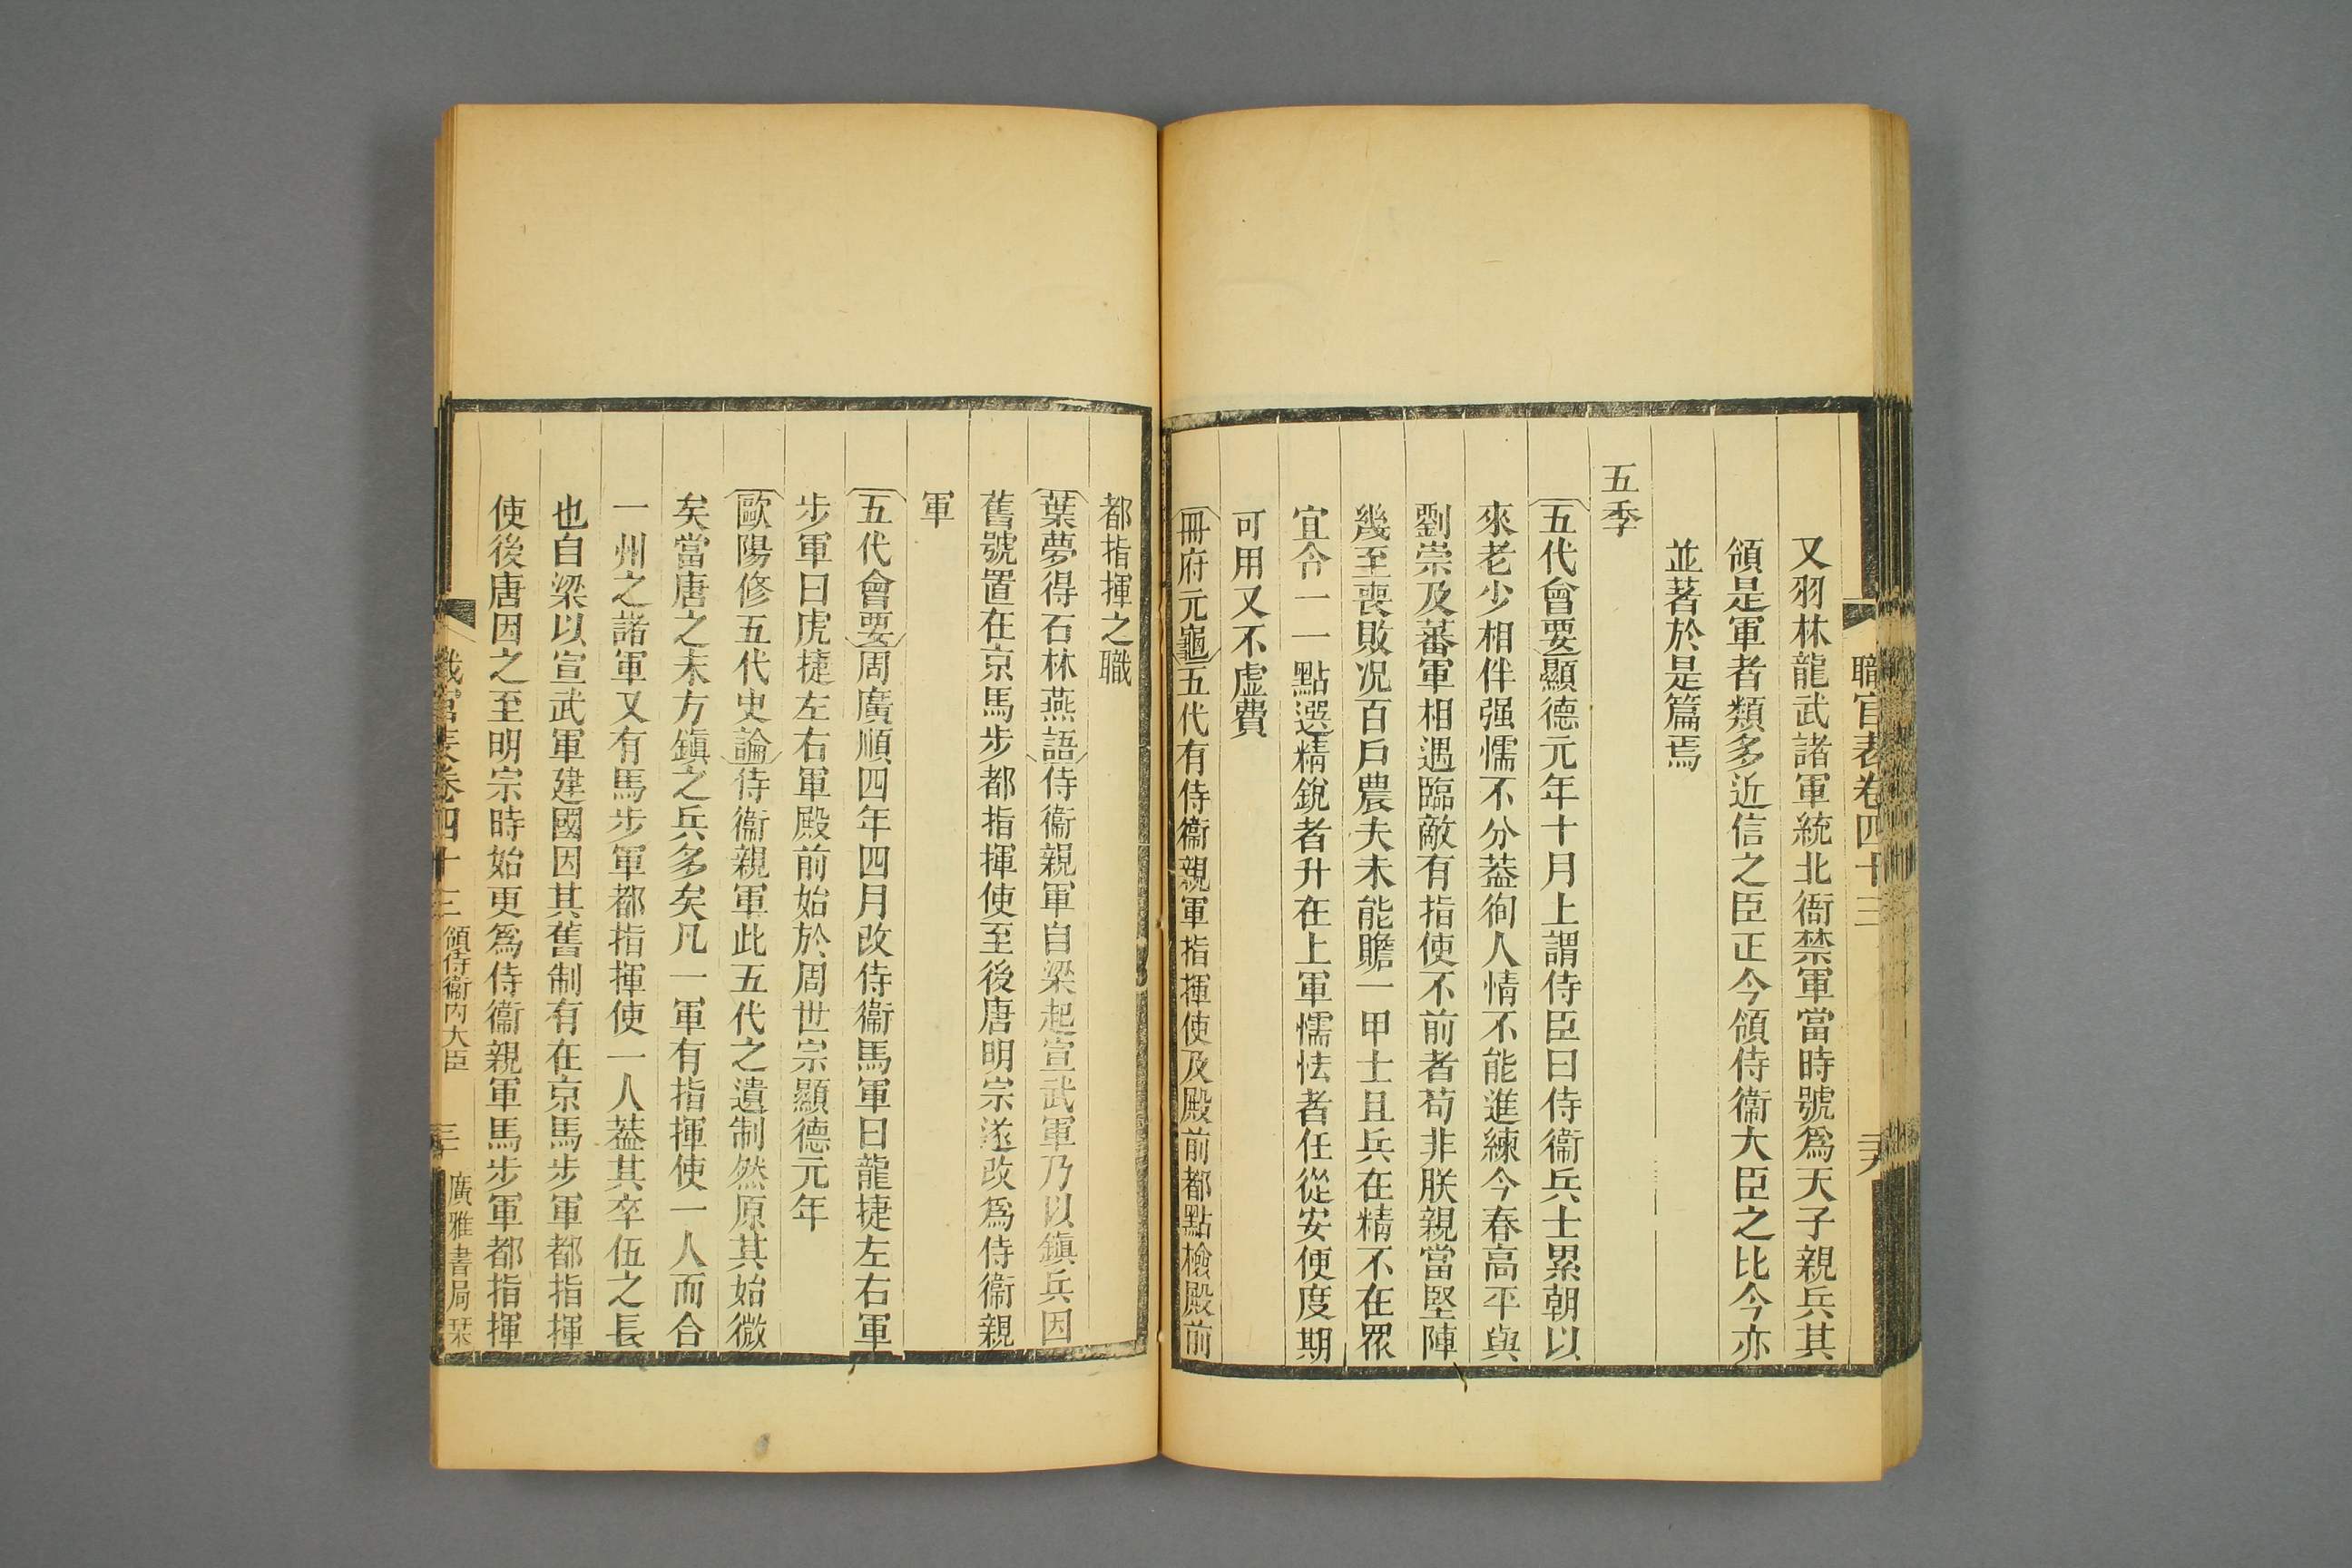 職官表卷四十三
又羽林龍武諸軍統北衙禁軍當時號爲天子親兵其
領是軍者類多近信之臣正今領侍衞大臣之比今亦
並著於是篇焉
五季
五代會要顯德元年十月上謂侍臣曰侍衞兵士累朝以
來老少相伴强懦不分葢徇人情不能進練今春高平與
劉崇及蕃軍相遇臨敵有指使不前者苟非朕親當堅陣
幾至喪敗况百戶農夫未能贍一甲士且兵在精不在眾
宜令一一點選精銳者升在上軍懦怯者任從安便度期
可用又不虛費
冊府元龜五代有侍衞親軍指揮使及殿前都點檢殿前
都指揮之職
葉夢得石林燕語侍衞親軍自梁起宣武軍乃以鎭兵因
舊號置在京馬步都指揮使至後唐明宗遂改爲侍衞親
軍
五代會要周廣順四年四月改侍衞馬軍曰龍捷左右軍
步軍曰虎捷左右軍殿前始於周世宗顯德元年
歐陽修五代史論侍衞親軍此五代之遺制然原其始微
矣當唐之末方鎭之兵多矣凡一軍有指揮使一人而合
一州之諸軍又有馬步軍都指揮使一人葢其卒伍之長
也自梁以宣武軍建國因其舊制有在京馬步軍都指揮
使後唐因之至明宗時始更爲侍衞親軍馬步軍都指揮
職官表卷四十三 領侍衞內大臣 三 廣雅書局栞